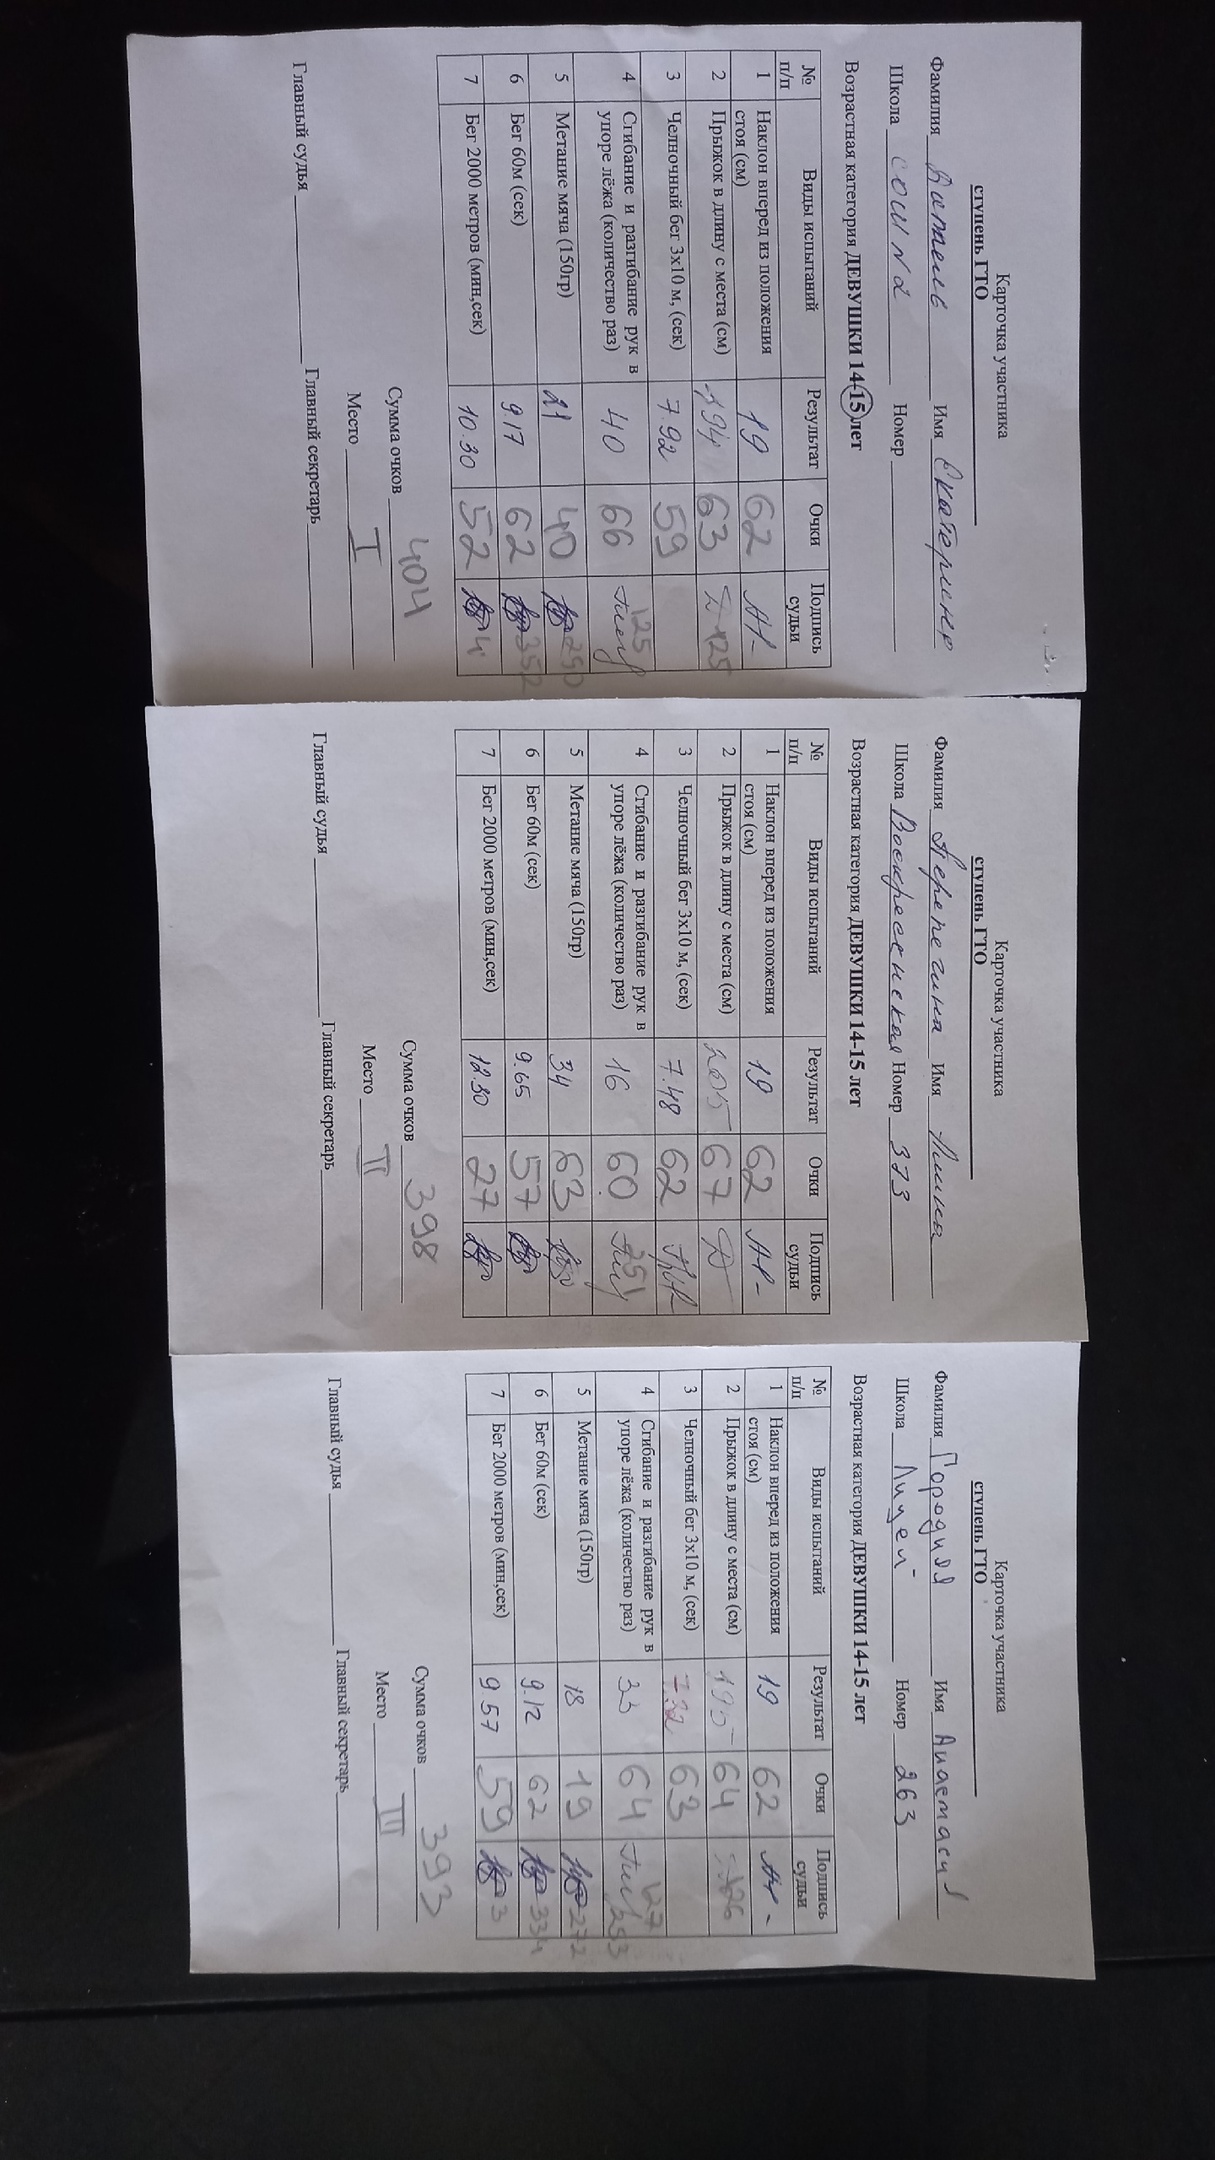 Карточка участника
ступень ГТО
Фамилия Имя Екатерина
Школа СОШ №2 Номер
Возрастная категория ДЕВУШКИ 14-15 лет
№ п/п Виды испытаний Результат Очки Подпись судьи
1 Наклон вперед из положения стоя (см) 19 62
2 Прыжок в длину с места (см) 194 63 125
3 Челночный бег 3х10 м, (сек) 7.92 59
4 Сгибание и разгибание рук в упоре лёжа (количество раз) 40 66 125
5 Метание мяча (150гр) 21 40 250
6 Бег 60м (сек) 9.17 62 352
7 Бег 2000 метров (мин,сек) 10.30 52 4
Сумма очков 404
Место I
Главный судья Главный секретарь
Карточка участника
ступень ГТО
Фамилия Имя
Школа Воскресенская Номер 373
Возрастная категория ДЕВУШКИ 14-15 лет
№ п/п Виды испытаний Результат Очки Подпись судьи
1 Наклон вперед из положения стоя (см) 19 62
2 Прыжок в длину с места (см) 205 67
3 Челночный бег 3х10 м, (сек) 7.48 62
4 Сгибание и разгибание рук в упоре лёжа (количество раз) 16 60 251
5 Метание мяча (150гр) 34 63
6 Бег 60м (сек) 9.65 57
7 Бег 2000 метров (мин,сек) 12.30 27
Сумма очков 398
Место II
Главный судья Главный секретарь
Карточка участника
ступень ГТО
Фамилия Городняя Имя Анастасия
Школа Лицей Номер 263
Возрастная категория ДЕВУШКИ 14-15 лет
№ п/п Виды испытаний Результат Очки Подпись судьи
1 Наклон вперед из положения стоя (см) 19 62
2 Прыжок в длину с места (см) 195 64 126
3 Челночный бег 3х10 м, (сек) 7.32 63
4 Сгибание и разгибание рук в упоре лёжа (количество раз) 33 64 127 253
5 Метание мяча (150гр) 18 19 272
6 Бег 60м (сек) 9.12 62 334
7 Бег 2000 метров (мин,сек) 9.57 59 3
Сумма очков 393
Место III
Главный судья Главный секретарь